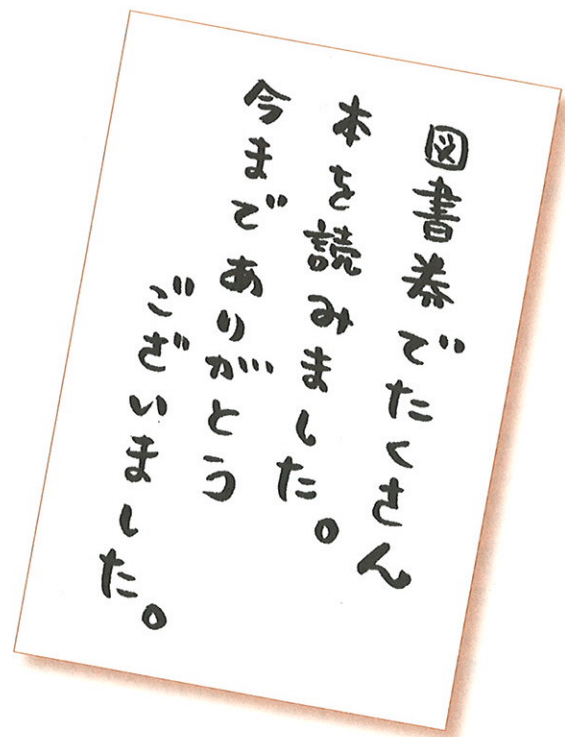 図書券でたくさん
本を読みました。
今までありがとう
ございました。